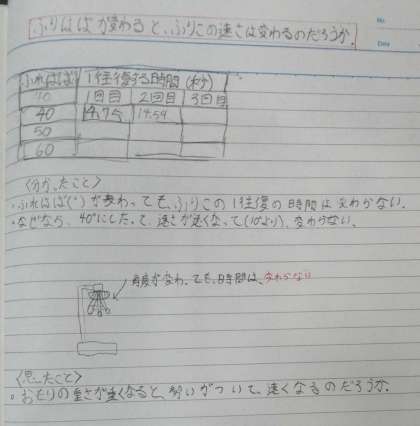 ふりはばが変わると、ふりこの速さは変わるのだろうか。
No.
Date
ふれはば 1往復する時間(秒)
10 1回目 2回目 3回目
40 14.75 14.59
50
60
〈分かったこと〉
・ふれはば(°)が変わっても、ふりこの1往復の時間は変わらない。
・なぜなら、40°にしたって、速さが速くなって(10°より)、変わらない。
角度が変わっても、時間は、変わらない
〈思ったこと〉
・おもりの重さが重くなると、勢いがついて、速くなるのだろうか。